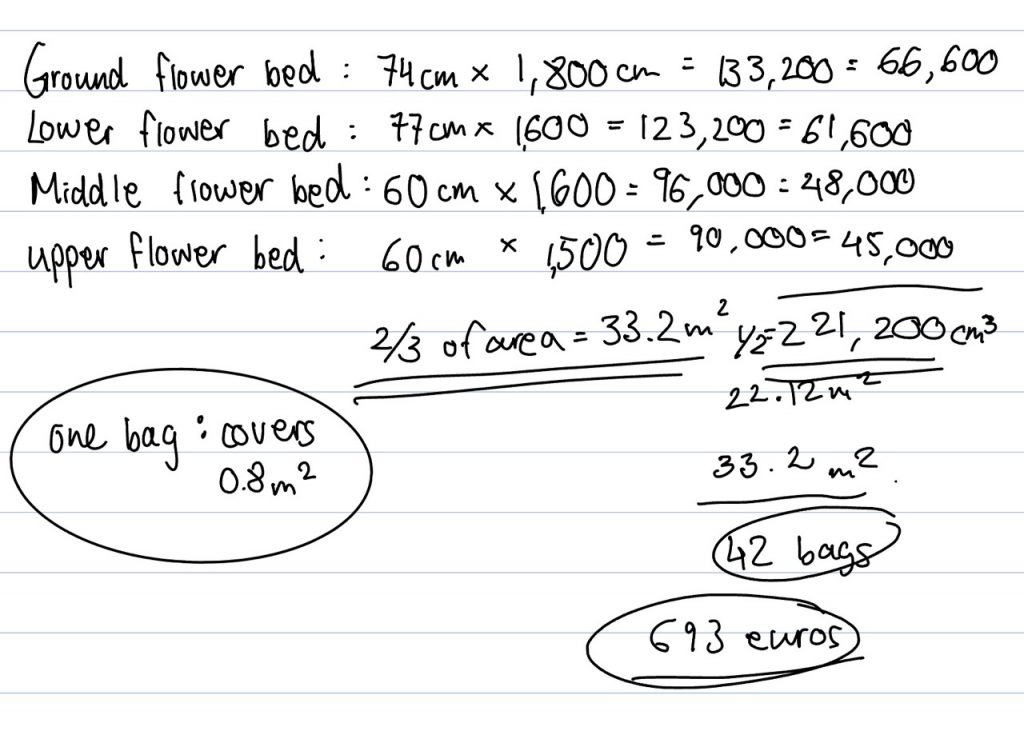 Ground flower bed : 74cm x 1,800 cm = 133,200 = 66,600
Lower flower bed : 77cm x 1,600 = 123,200 = 61,600
Middle flower bed : 60 cm x 1,600 = 96,000 = 48,000
upper flower bed : 60 cm x 1,500 = 90,000 = 45,000
2/3 of area = 33.2 m² 1/2 = 221,200 cm³
22.12 m²
one bag : covers
0.8 m²
33.2 m²
42 bags
693 euros